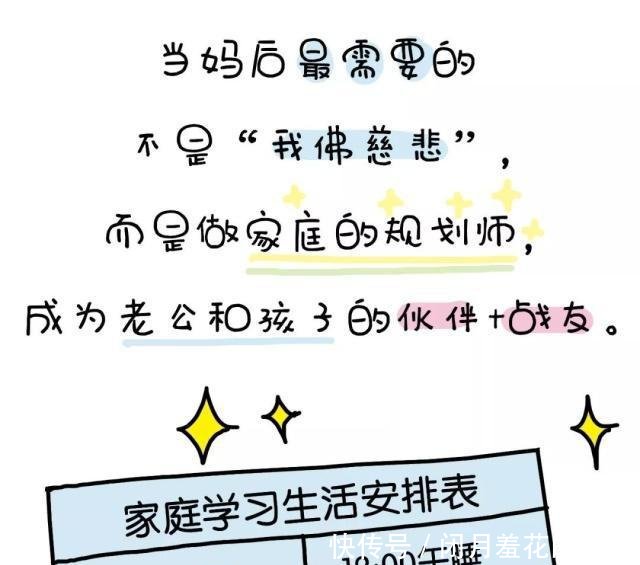 当妈后最需要的
不是“我佛慈悲”，
而是做家庭的规划师，
成为老公和孩子的伙伴+战友。
家庭学习生活安排表
快传号/闭月羞花